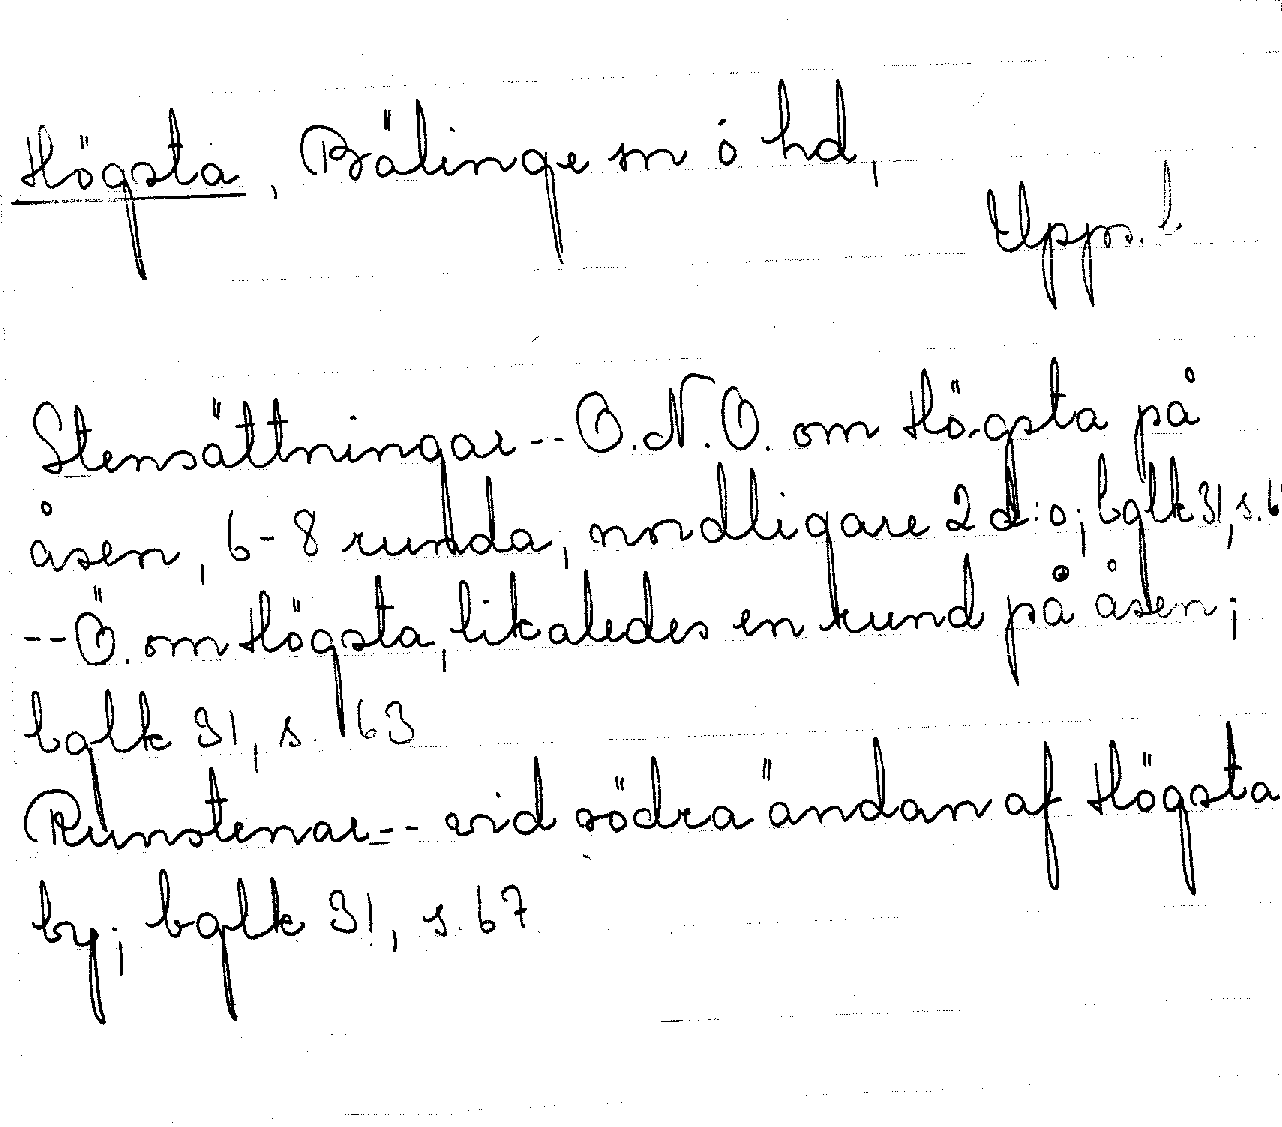 Högsta, Bälinge sn ó hd,
Upps. l.
Stensättningar -- O.N.O. om Högsta på
åsen, 6-8 runda, nordligare 2 d:o; bglk 31, s.
-- Ö. om Högsta, likaledes en rund på åsen;
bglk 31, s. 63
Runstenar -- vid södra ändan af Högsta
by; bglk 31, s. 67